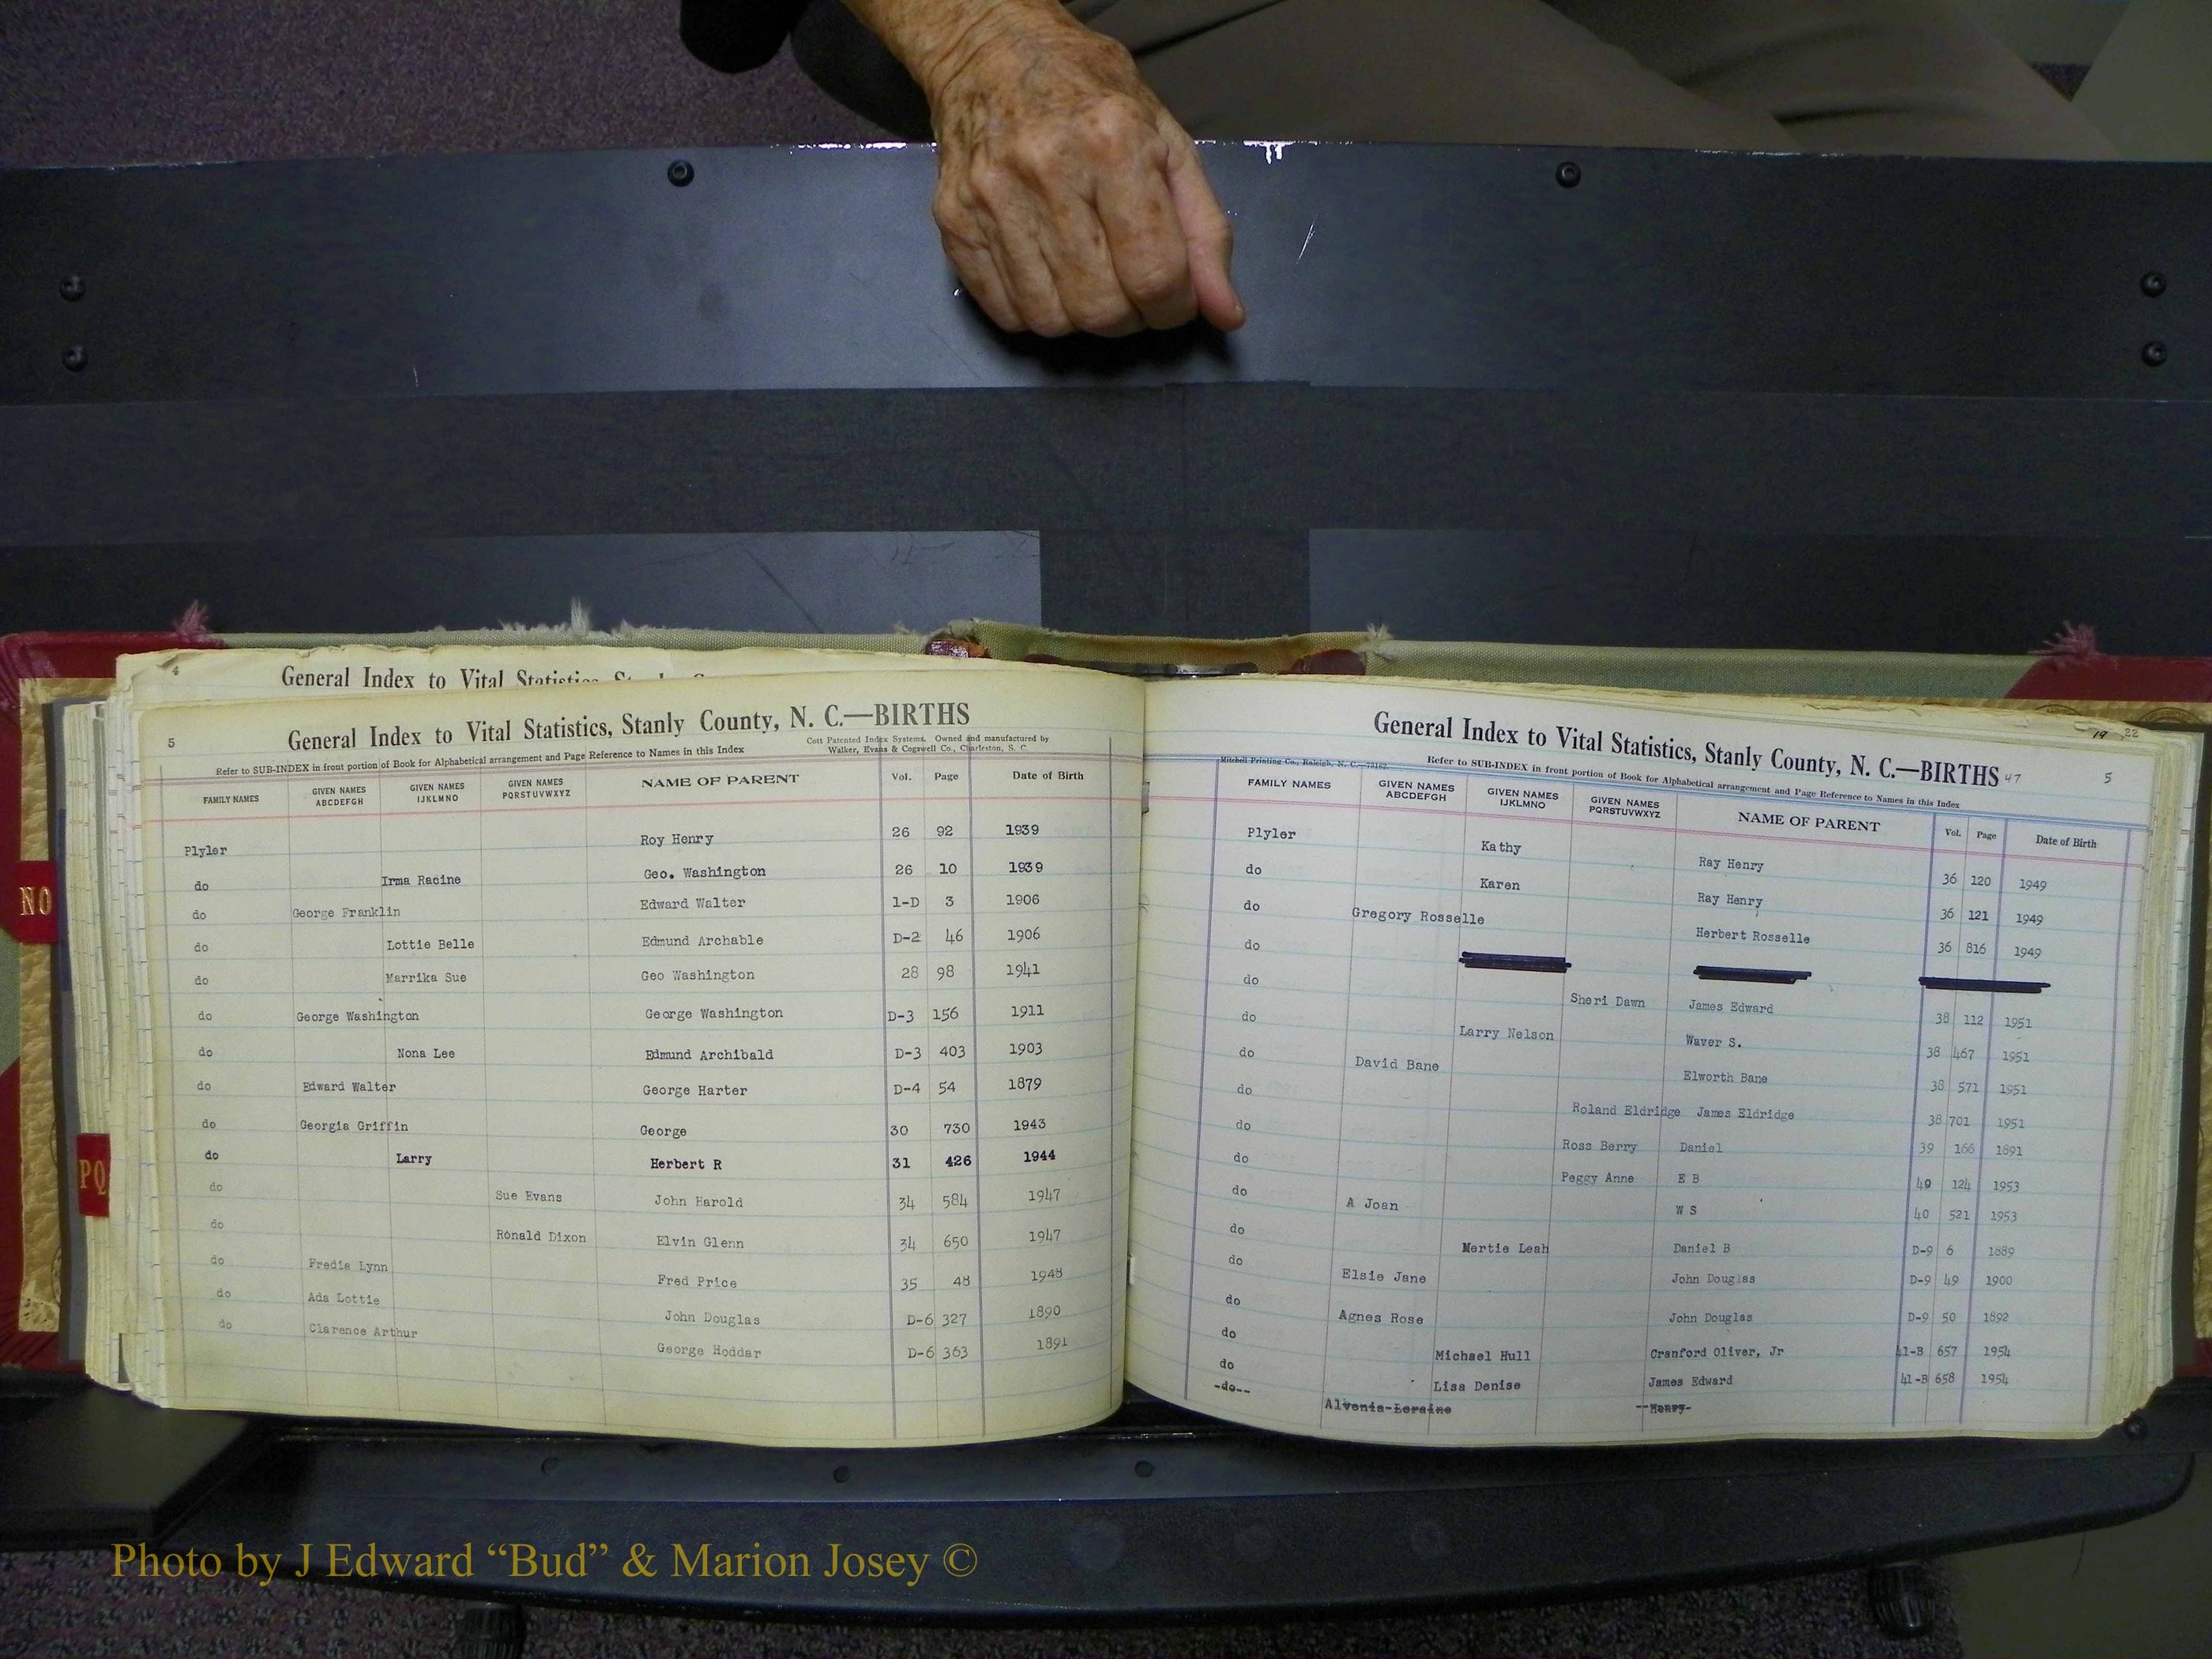 4
General Index to Vital Statistics
5
General Index to Vital Statistics, Stanly County, N. C.—BIRTHS
Refer to SUB-INDEX in front portion of Book for Alphabetical arrangement and Page Reference to Names in this Index
Cott Patented Index Systems. Owned and manufactured by
Walker, Evans & Cogswell Co., Charleston, S. C.
FAMILY NAMES GIVEN NAMES ABCDEFGH GIVEN NAMES IJKLMNO GIVEN NAMES PQRSTUVWXYZ NAME OF PARENT Vol. Page Date of Birth
Plyler Roy Henry 26 92 1939
do Irma Racine Geo. Washington 26 10 1939
do George Franklin Edward Walter 1-D 3 1906
do Lottie Belle Edmund Archable D-2 46 1906
do Marrika Sue Geo Washington 28 98 1941
do George Washington George Washington D-3 156 1911
do Nona Lee Edmund Archibald D-3 403 1903
do Edward Walter George Harter D-4 54 1879
do Georgia Griffin George 30 730 1943
do Larry Herbert R 31 426 1944
do Sue Evans John Harold 34 584 1947
do Ronald Dixon Elvin Glenn 34 650 1947
do Fredie Lynn Fred Price 35 48 1948
do Ada Lottie John Douglas D-6 327 1890
do Clarence Arthur George Hoddar D-6 363 1891
NO
PQ
19 22
General Index to Vital Statistics, Stanly County, N. C.—BIRTHS 47
5
Mitchell Printing Co., Raleigh, N. C.
Refer to SUB-INDEX in front portion of Book for Alphabetical arrangement and Page Reference to Names in this Index
FAMILY NAMES GIVEN NAMES ABCDEFGH GIVEN NAMES IJKLMNO GIVEN NAMES PQRSTUVWXYZ NAME OF PARENT Vol. Page Date of Birth
Plyler Kathy Ray Henry 36 120 1949
do Karen Ray Henry 36 121 1949
do Gregory Rosselle Herbert Rosselle 36 816 1949
do
do Sheri Dawn James Edward 38 112 1951
do Larry Nelson Waver S. 38 467 1951
do David Bane Elworth Bane 38 571 1951
do Roland Eldridge James Eldridge 38 701 1951
do Ross Berry Daniel 39 166 1891
do Peggy Anne E B 40 124 1953
do A Joan W S 40 521 1953
do Mertie Leah Daniel B D-9 6 1889
do Elsie Jane John Douglas D-9 49 1900
do Agnes Rose John Douglas D-9 50 1892
do Michael Hull Cranford Oliver, Jr 41-B 657 1954
do Lisa Denise James Edward 41-B 658 1954
-do-- Alvenia-Loraine --Henry-
Photo by J Edward “Bud” & Marion Josey ©